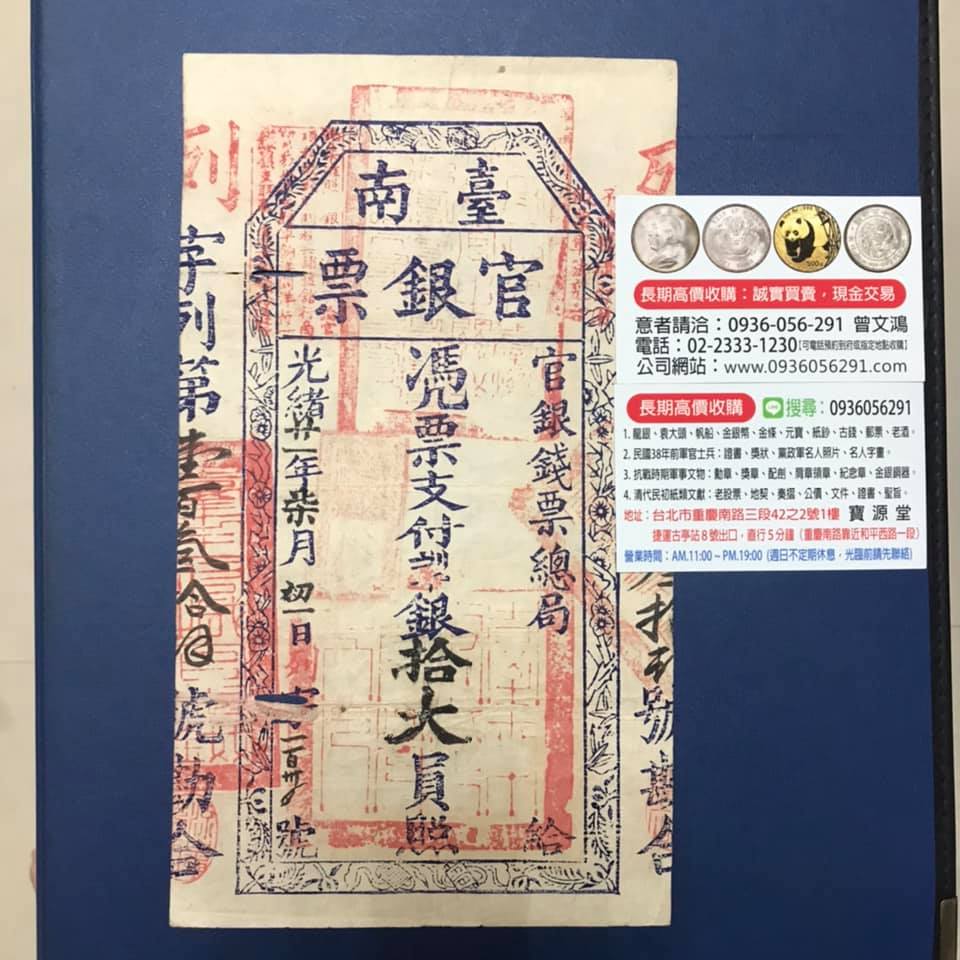 臺南
官銀票
官銀錢票總局
給
憑票支付
銀拾大員
照
光緒廿一年柒月初一日
字
號
列
字列第壹百叁
號勘合
號勘合
長期高價收購：誠實買賣，現金交易
意者請洽：0936-056-291 曾文鴻
電話：02-2333-1230【可電話預約到府或指定地點收購】
公司網站：www.0936056291.com
長期高價收購 搜尋：0936056291
1. 龍銀、袁大頭、帆船、金銀幣、金條、元寶、紙鈔、古錢、郵票、老酒。
2. 民國38年前軍官士兵：證書、獎狀、黨政軍名人照片、名人字畫。
3. 抗戰時期軍事文物：勳章、獎章、配劍、肩章領章、紀念章、金銀銅器。
4. 清代民初紙類文獻：老股票、地契、奏摺、公債、文件、證書、聖旨。
地址：台北市重慶南路三段42之2號1樓 寶源堂
捷運古亭站8號出口，直行5分鐘（重慶南路靠近和平西路一段）
營業時間：AM.11:00 ~ PM.19:00 (週日不定期休息，光臨前請先聯絡)